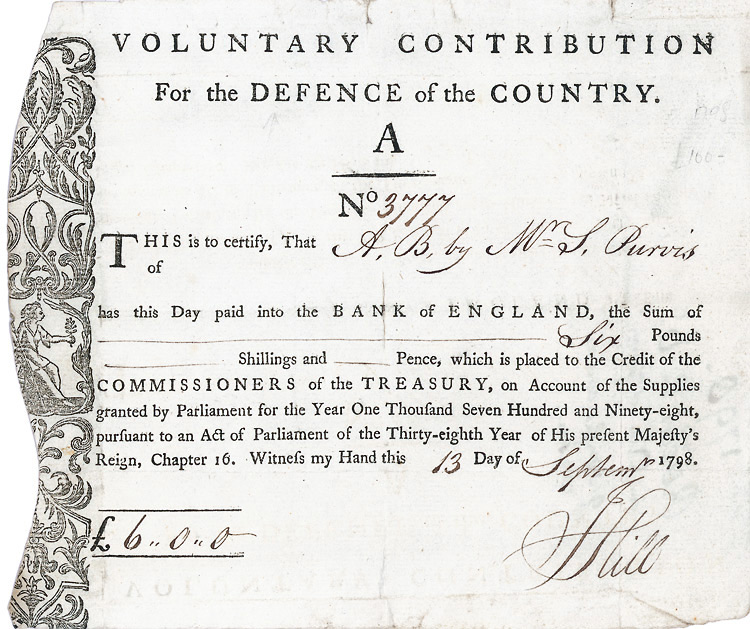 VOLUNTARY CONTRIBUTION
For the DEFENCE of the COUNTRY.
A
No 3777
THIS is to certify, That A. B. by Mr. S. Purvis
of
has this Day paid into the BANK of ENGLAND, the Sum of
Six Pounds
Shillings and Pence, which is placed to the Credit of the
COMMISSIONERS of the TREASURY, on Account of the Supplies
granted by Parliament for the Year One Thouſand Seven Hundred and Ninety-eight,
purſuant to an Act of Parliament of the Thirty-eighth Year of His preſent Majeſty's
Reign, Chapter 16. Witneſs my Hand this 13 Day of Septemr 1798.
£ 6 " 0 " 0